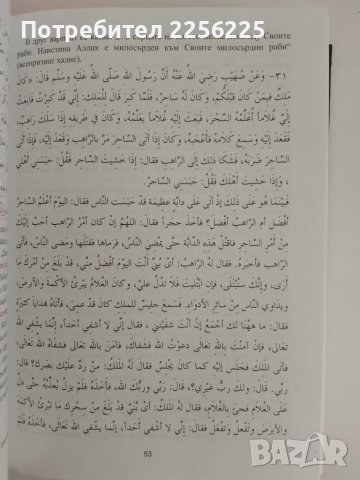 2256225
В друг вариант Своите
раби. Наистина Аллах е милосърден към Своите милосърдни раби“
(всепризнат хадис).
-٣١ وَعَنْ صُهَيْبٍ رَضِيَ اللهُ عَنْهُ أَنَّ رَسُولَ اللهِ صَلَّى اللهُ عَلَيْهِ وَسَلَّمَ قَالَ: "كَانَ
مَلِكٌ فِيمَنْ كَانَ قَبْلَكُمْ، وَكَانَ لَهُ سَاحِرٌ، فَلَمَّا كَبِرَ قَالَ لِلْمَلِكِ: إِنِّي قَدْ كَبِرْتُ فَابْعَثْ
إِلَيَّ غُلَامًا أُعَلِّمْهُ السِّحْرَ، فَبَعَثَ إِلَيْهِ غُلَامًا يُعَلِّمُهُ، وَكَانَ فِي طَرِيقِهِ إِذَا سَلَكَ رَاهِبٌ،
فَقَعَدَ إِلَيْهِ وَسَمِعَ كَلَامَهُ فَأَعْجَبَهُ، وَكَانَ إِذَا أَتَى السَّاحِرَ مَرَّ بِالرَّاهِبِ وَقَعَدَ إِلَيْهِ، فَإِذَا أَتَى
السَّاحِرَ ضَرَبَهُ، فَشَكَا ذَلِكَ إِلَى الرَّاهِبِ فَقَالَ: إِذَا خَشِيتَ السَّاحِرَ فَقُلْ: حَبَسَنِي أَهْلِي
، وَإِذَا خَشِيتَ أَهْلَكَ فَقُلْ: حَبَسَنِي السَّاحِرُ.
فَبَيْنَمَا هُوَ عَلَى ذَلِكَ إِذْ أَتَى عَلَى دَابَّةٍ عَظِيمَةٍ قَدْ حَبَسَتِ النَّاسَ فَقَالَ: الْيَوْمَ أَعْلَمُ السَّاحِرُ
أَفْضَلُ أَمِ الرَّاهِبُ أَفْضَلُ؟ فَأَخَذَ حَجَرًا فَقَالَ: اللَّهُمَّ إِنْ كَانَ أَمْرُ الرَّاهِبِ أَحَبَّ إِلَيْكَ
مِنْ أَمْرِ السَّاحِرِ فَاقْتُلْ هَذِهِ الدَّابَّةَ حَتَّى يَمْضِيَ النَّاسُ، فَرَمَاهَا فَقَتَلَهَا وَمَضَى النَّاسُ، فَأَتَى
الرَّاهِبَ فَأَخْبَرَهُ. فَقَالَ لَهُ الرَّاهِبُ: أَيْ بُنَيَّ أَنْتَ الْيَوْمَ أَفْضَلُ مِنِّي، قَدْ بَلَغَ مِنْ أَمْرِكَ مَا
أَرَى، وَإِنَّكَ سَتُبْتَلَى، فَإِنِ ابْتُلِيتَ فَلَا تَدُلَّ عَلَيَّ، وَكَانَ الْغُلَامُ يُبْرِئُ الْأَكْمَهَ وَالْأَبْرَصَ،
وَيُدَاوِي النَّاسَ مِنْ سَائِرِ الْأَدْوَاءِ. فَسَمِعَ جَلِيسٌ لِلْمَلِكِ كَانَ قَدْ عَمِيَ، فَأَتَاهُ بِهَدَايَا كَثِيرَةٍ
فَقَالَ: مَا هَهُنَا لَكَ أَجْمَعُ إِنْ أَنْتَ شَفَيْتَنِي، فَقَالَ: إِنِّي لَا أَشْفِي أَحَدًا، إِنَّمَا يَشْفِي اللهُ
تَعَالَى، فَإِنْ آمَنْتَ بِاللهِ تَعَالَى دَعَوْتُ اللهَ فَشَفَاكَ، فَآمَنَ بِاللهِ تَعَالَى فَشَفَاهُ اللهُ تَعَالَى،
فَأَتَى الْمَلِكَ فَجَلَسَ إِلَيْهِ كَمَا كَانَ يَجْلِسُ فَقَالَ لَهُ الْمَلِكُ: مَنْ رَدَّ عَلَيْكَ بَصَرَكَ؟ قَالَ:
رَبِّي. قَالَ: وَلَكَ رَبٌّ غَيْرِي؟، قَالَ: رَبِّي وَرَبُّكَ اللهُ، فَأَخَذَهُ فَلَمْ يَزَلْ يُعَذِّبُهُ حَتَّى دَلَّ
عَلَى الْغُلَامِ، فَجِيءَ بِالْغُلَامِ، فَقَالَ لَهُ الْمَلِكُ: أَيْ بُنَيَّ قَدْ بَلَغَ مِنْ سِحْرِكَ مَا تُبْرِئُ الْأَكْمَهَ
وَالْأَبْرَصَ وَتَفْعَلُ وَتَفْعَلُ فَقَالَ: إِنِّي لَا أَشْفِي أَحَدًا، إِنَّمَا يَشْفِي اللهُ تَعَالَى، فَأَخَذَهُ فَلَمْ
53
bazar